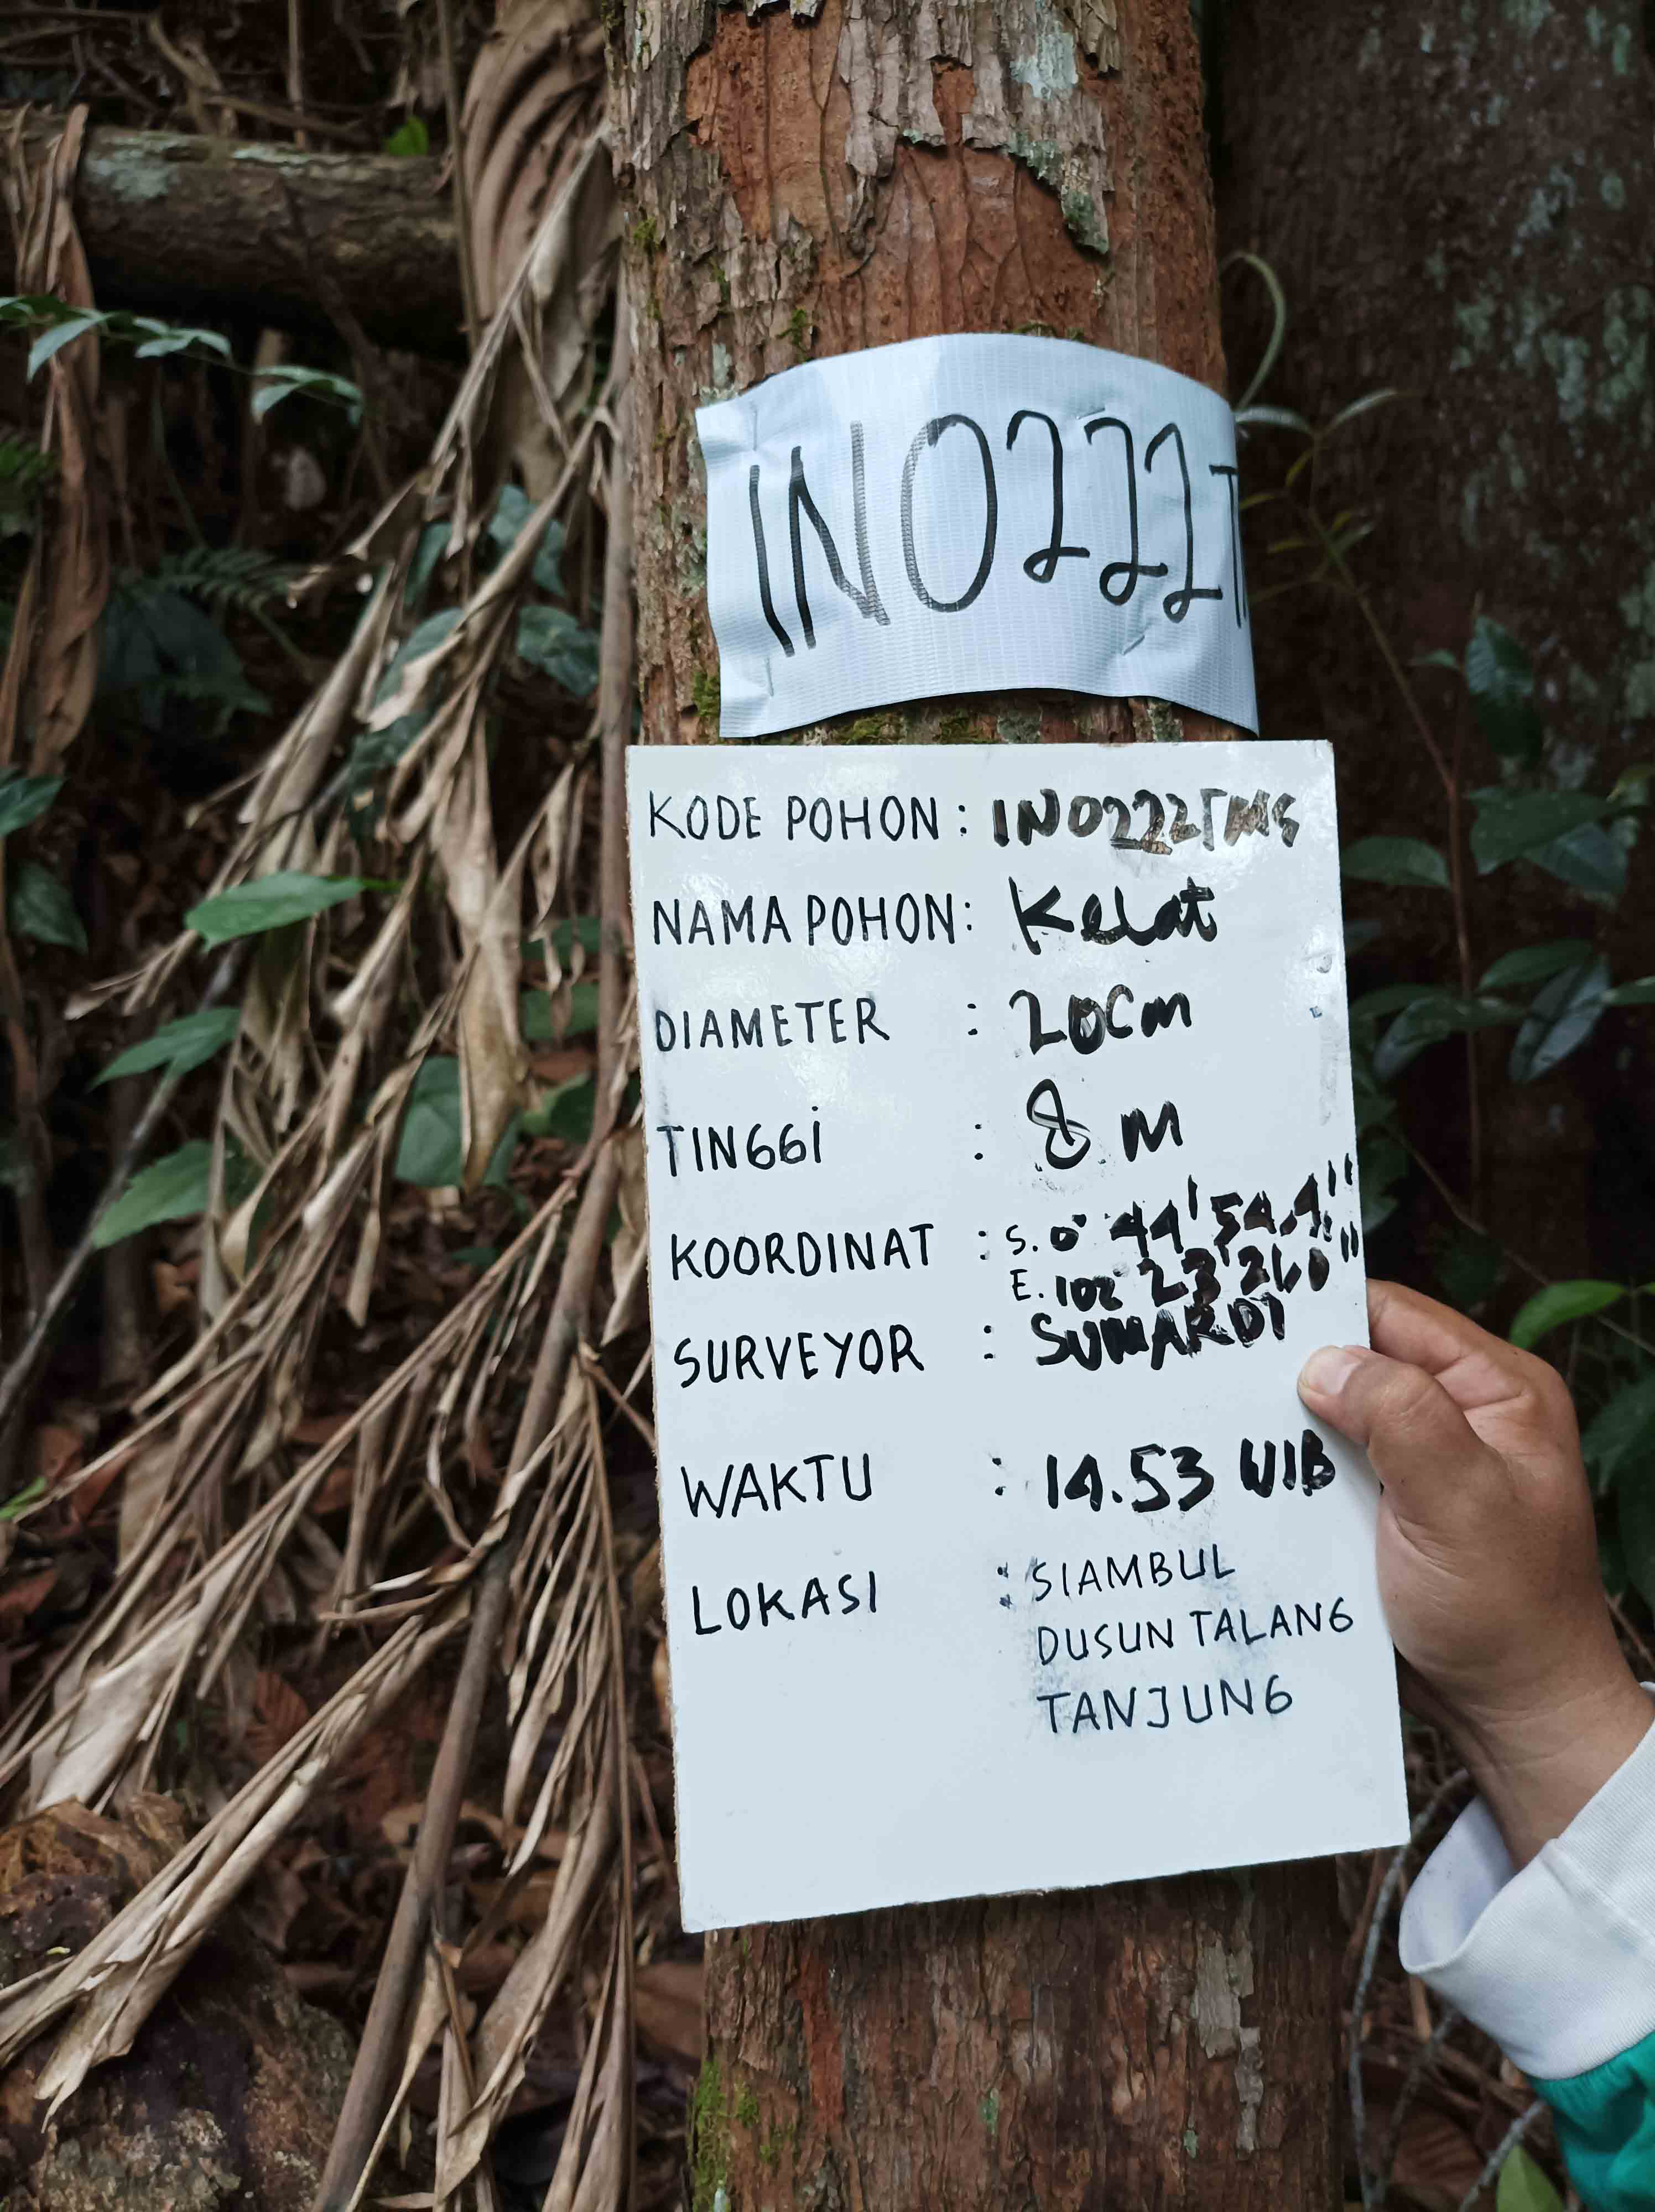 INO222T
KODE POHON : INO222TMS
NAMA POHON : Kelat
DIAMETER : 20Cm
TINGGi : 8 M
KOORDINAT : S. 0° 44' 54,4''
E. 102° 23' 26,0''
SURVEYOR : SUMARDI
WAKTU : 14.53 WIB
LOKASI : SIAMBUL
DUSUN TALANG
TANJUNG